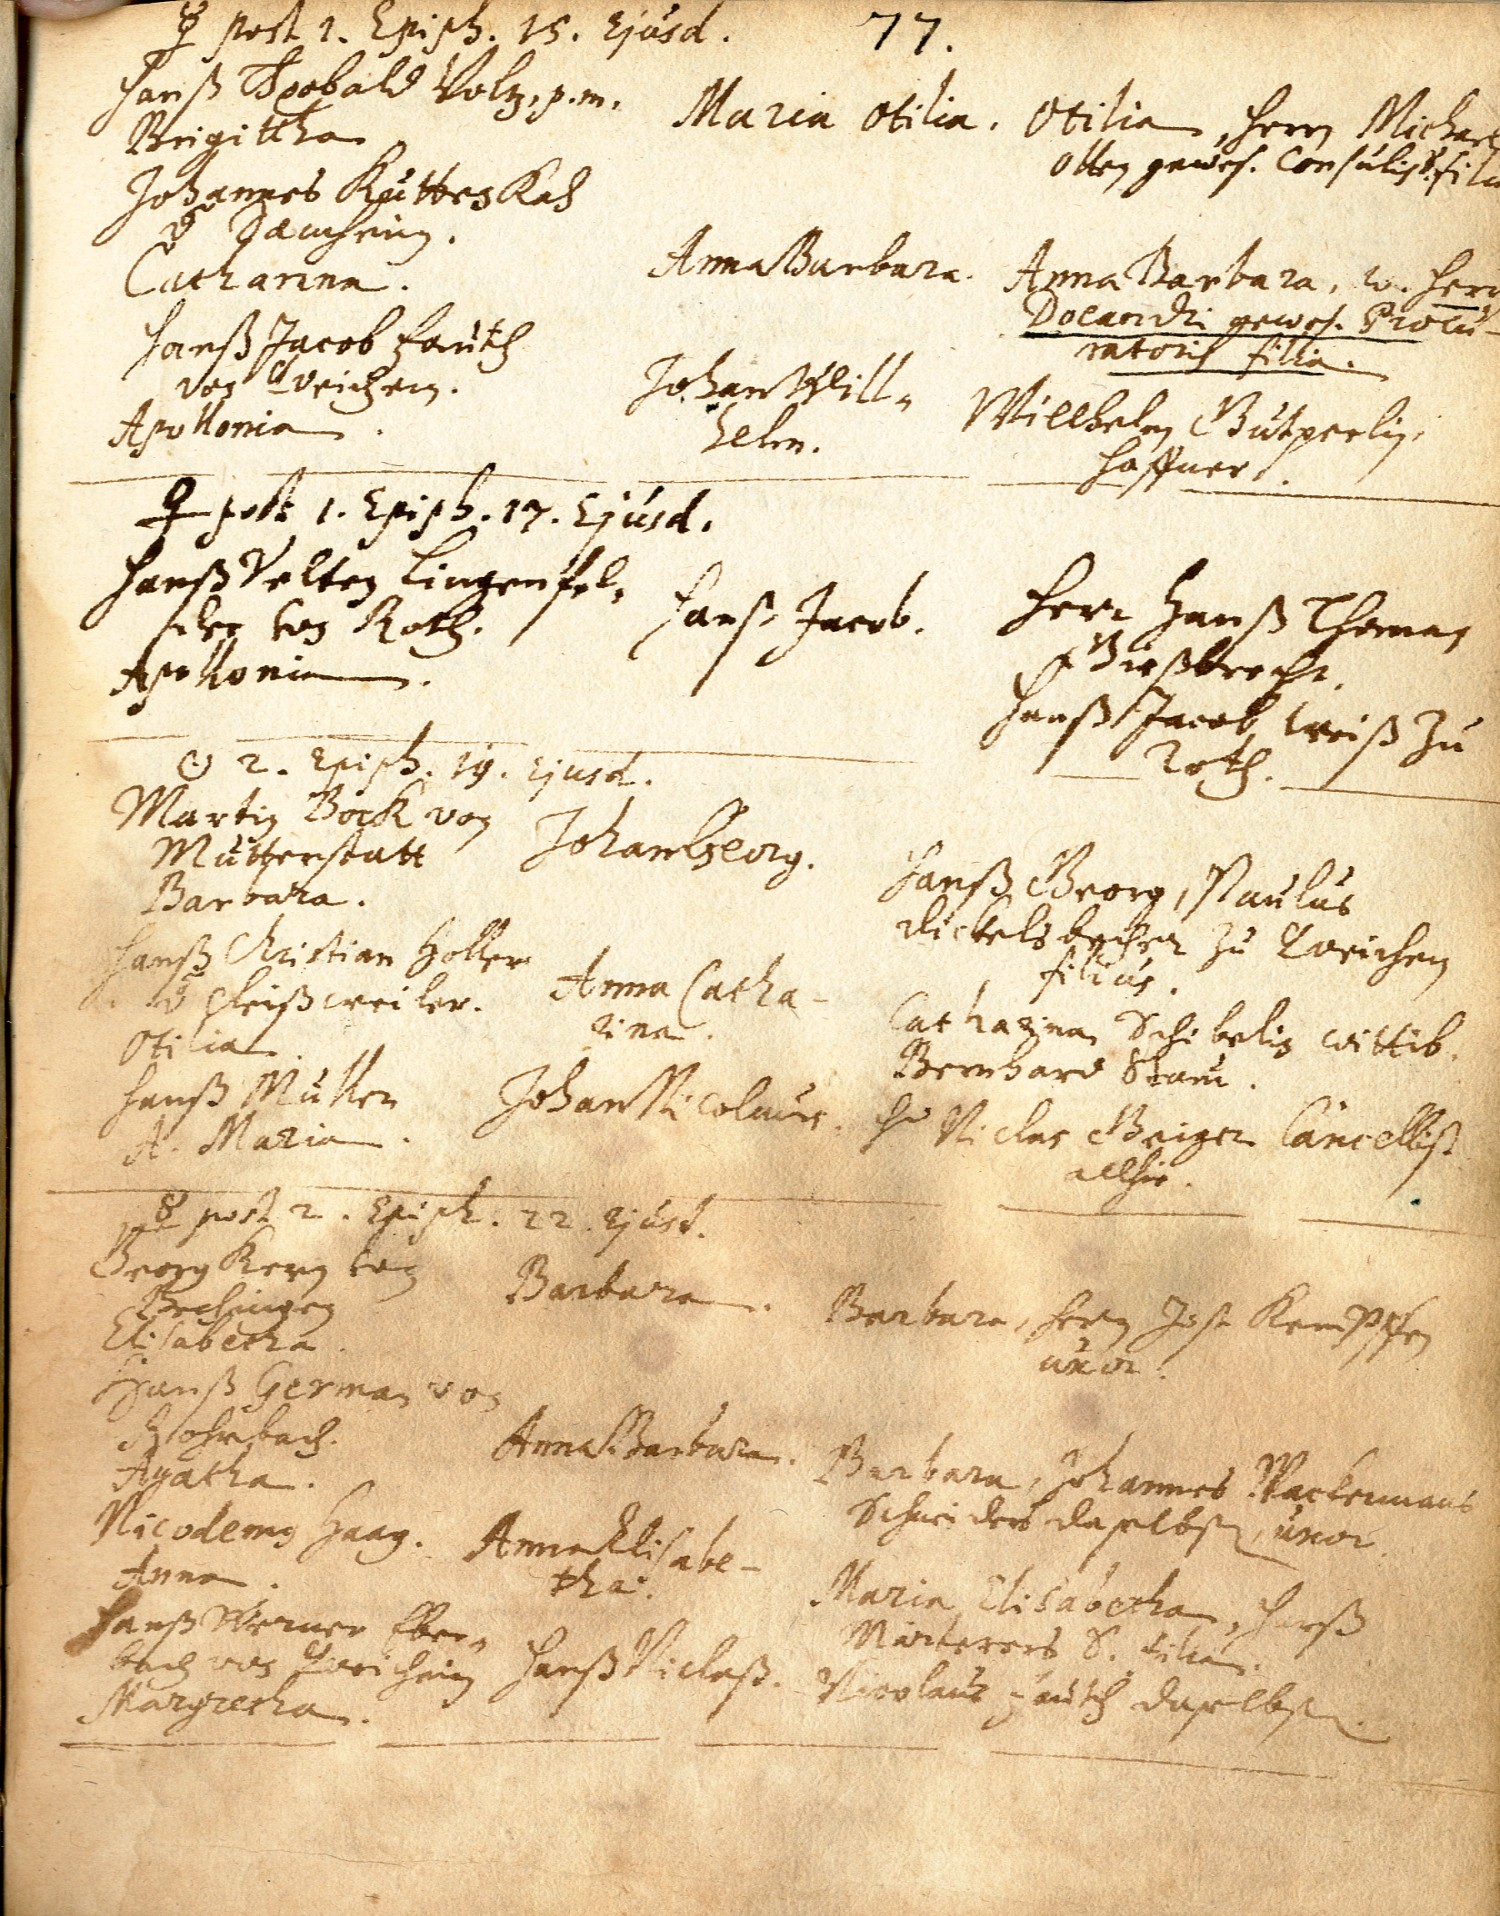 ☿ post 1. Epiph. 15. Ejusd.
77.
Hanß Theobald Voltz, p.m.
Brigittha
Maria Otilia.
Otilia, Herrn Michael
Otten gewes. Consulis
Johannes
Catharina.
Anna Barbara.
Anna Barbara, w. Herr
gewes. Procu-
ratoris filia.
Hanß Jacob Fauth
von Queichem.
Apollonia.
Johan Will-
helm.
Willhelm
Haffner.
♀ post 1. Epiph. 17. Ejusd.
Hanß Velten Lingenfel-
der von Roth.
Apollonia.
Hanß Jacob.
Herr Hanß Thomas
Gießbrecht.
Hanß Jacob Weiß zu
Roth.
☉ 2. Epiph. 19. Ejusd.
Martin Böck von
Mutterstatt
Barbara.
Johan Georg.
Hanß Georg, Paulus
Dickelsbecher zu Queichem
filius.
Hanß Christian Holler
v. Pleißweiler.
Otilia.
Anna Catha-
rina.
Catharina Schibelin wittib.
Bernhard
Hanß Muller
A. Maria.
Johan Nicolaus.
Hr Niclas Geiger Cancellist
allhie.
☿ post 2. Epiph. 22. Ejusd.
Georg Kern von
Bechingen
Elisabetha.
Barbara.
Barbara, Herrn Jost Kempffen
uxor.
Hanß German von
Rohrbach.
Agatha.
Anna Barbara.
Barbara, Johannes Wackermans
Schneiders daselbst, uxor.
Nicodemus Haag.
Anna.
Anna Elisabe-
tha.
Maria Elisabetha, Hanß
S. filia.
Hanß Werner Eber-
bach von Queicheim
Margretha.
Hanß Niclaß.
Nicolaus Fauth daselbst.